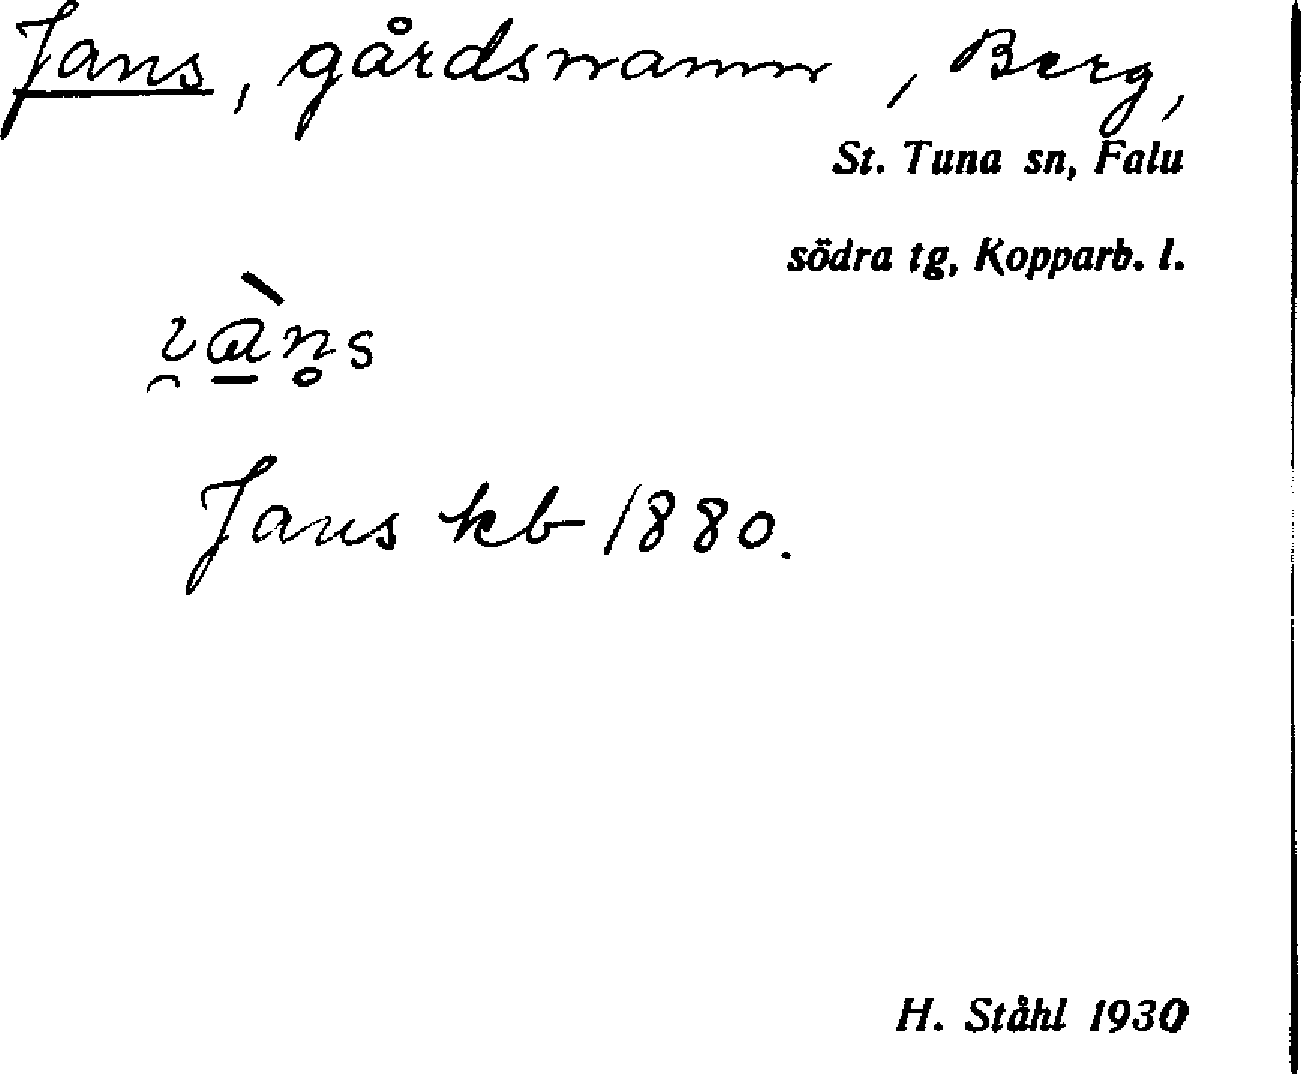 Jans, gårdsnamn, Berg,
St. Tuna sn, Falu
södra tg, Kopparb. l.
Jans kb 1880.
H. Ståhl 1930